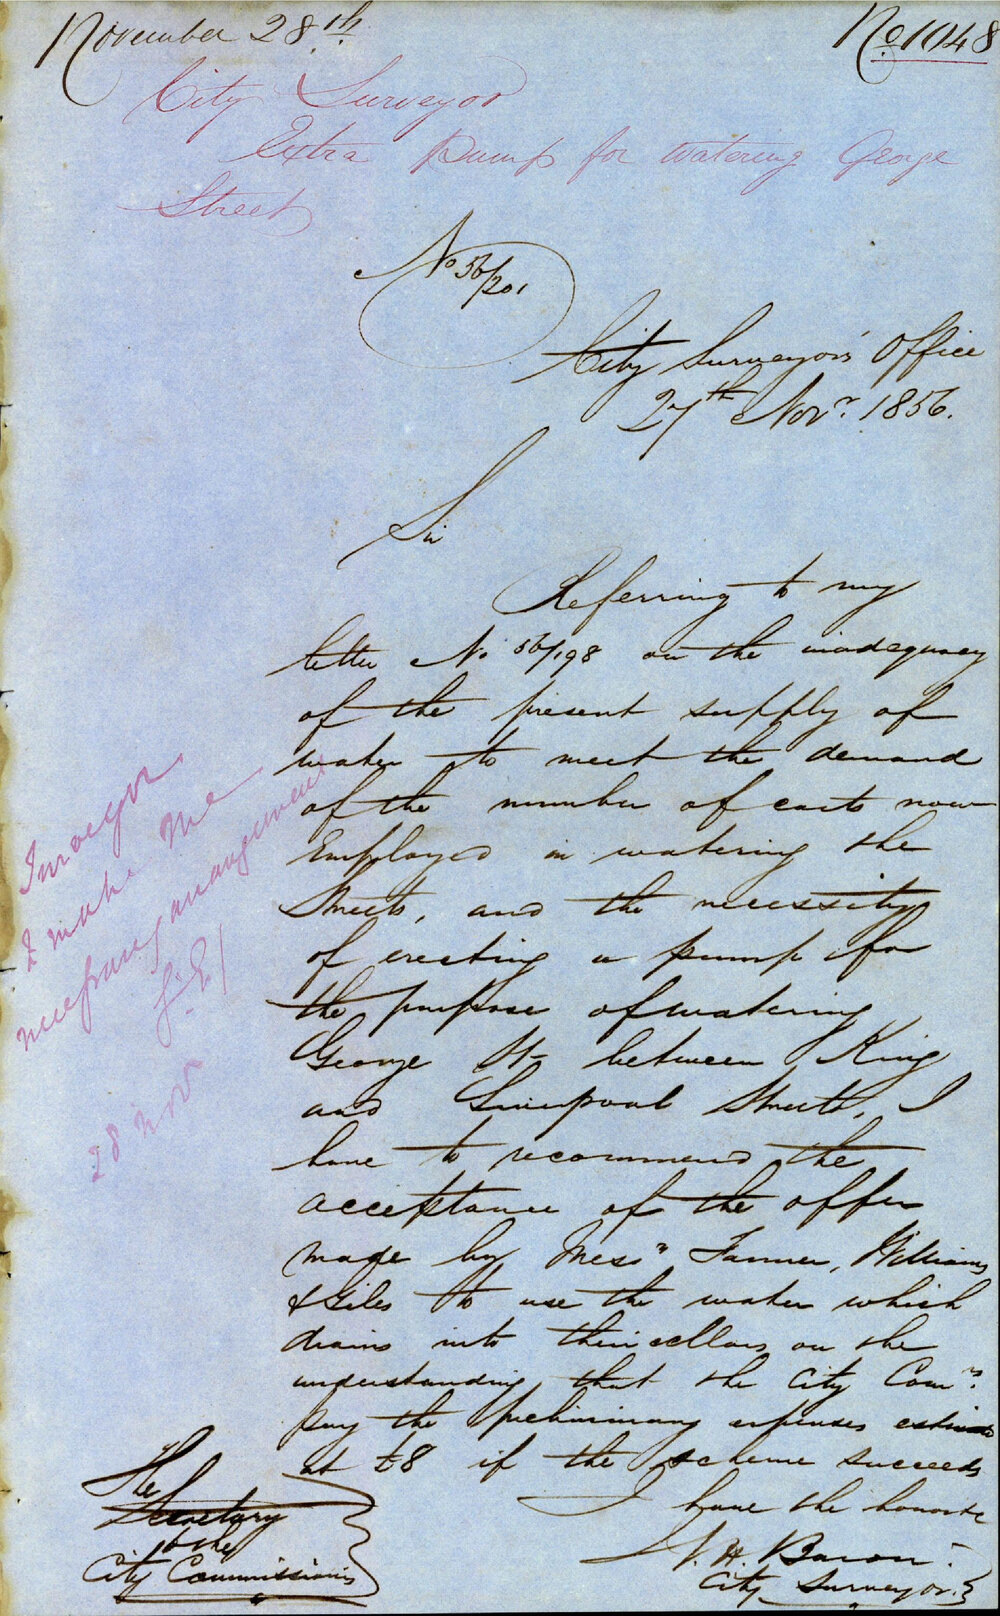 November 28th
No 1048
City Surveyor
Extra Pump for watering George
Street
No 56/201
City Surveyor's Office
27th Novr. 1856.
Sir
Referring to my
letter No 56/198 on the inadequacy
of the present supply of
water to meet the demand
of the number of carts now
Employed in watering the
Streets, and the necessity
of erecting a pump for
the purpose of watering
George St between King
and Liverpool Streets, I
have to recommend the
acceptance of the offer
made by Messrs Farmer, Williams
& Giles to use the water which
drains into their cellars on the
understanding that the City Comrs.
pay the preliminary expenses
at £8 if the scheme succeeds
I have the honor &c
The
Secretary
to the
City Commissioners
City Surveyor.
Surveyor
to make the
necessary arrangement
28 Nov